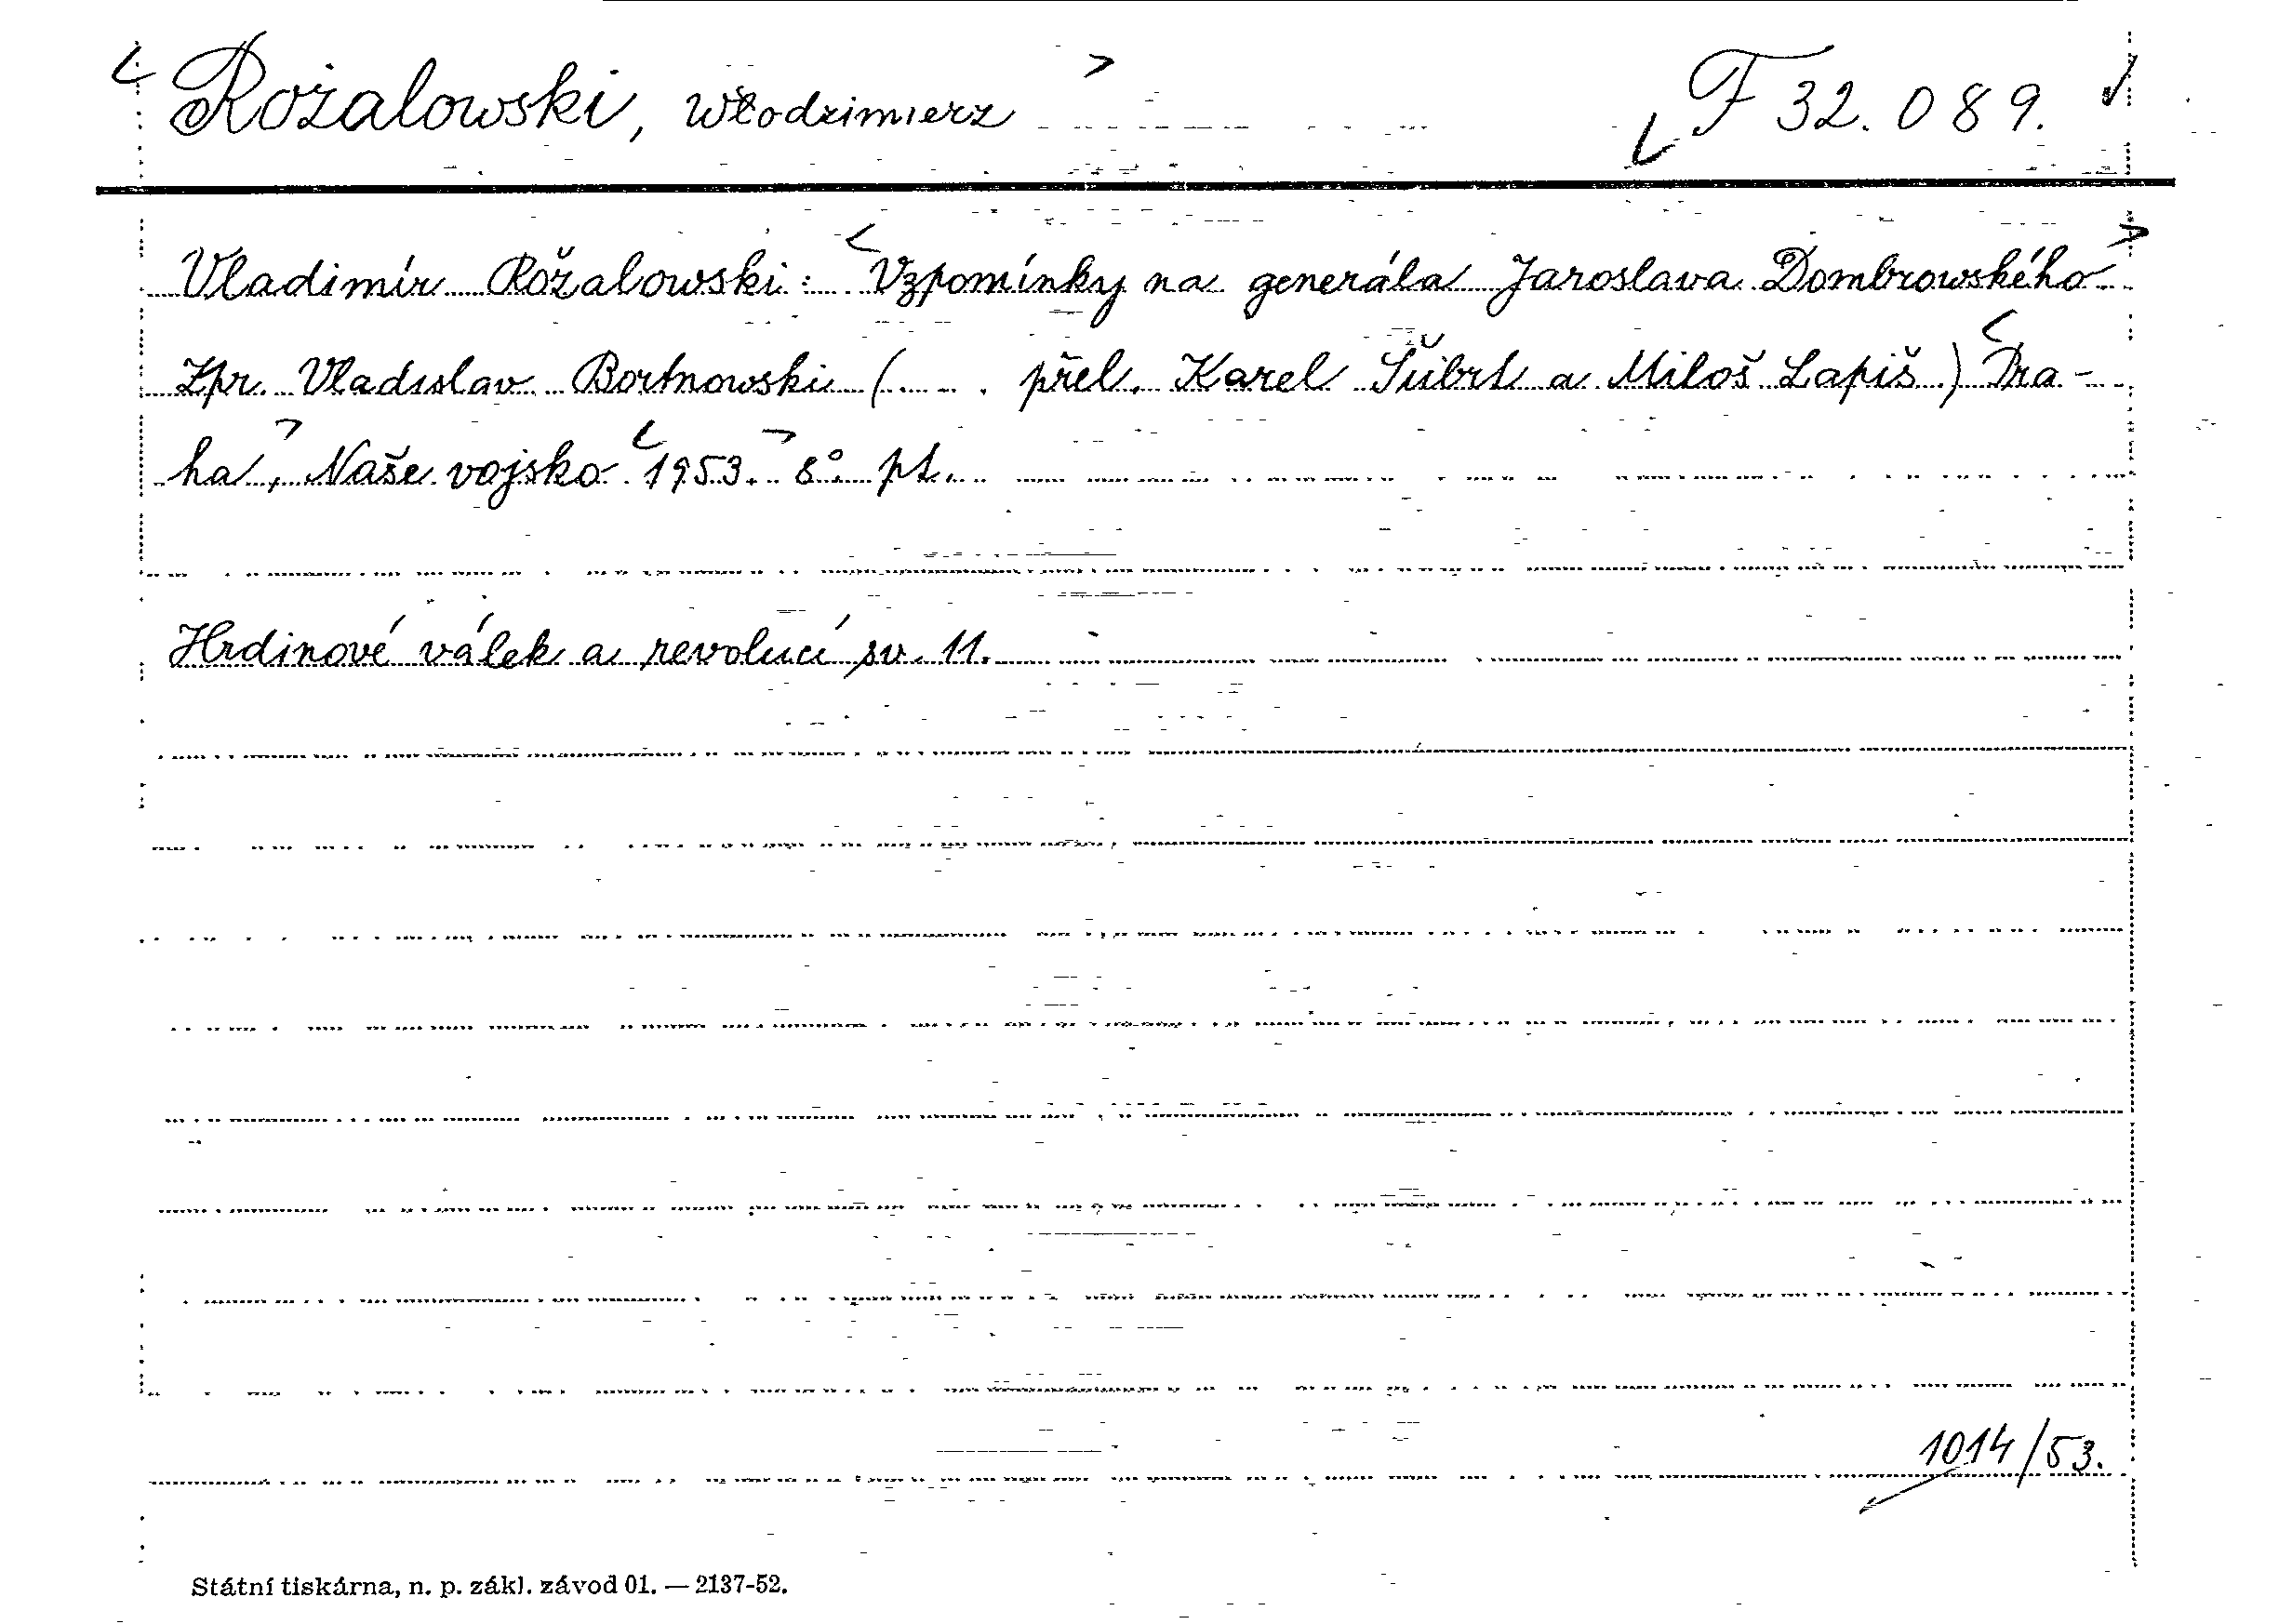 Rożalowski, Włodzimierz F 32.089.
Vladimír Rožalowski: Vzpomínky na generála Jaroslava Dombrowského
Zpr. Vladislav Bortnowski (... přel. Karel Šúbrt a Miloš Lapiš.) Pra-
ha, Naše vojsko 1953. 8°. pt.
Hrdinové válek a revolucí sv. 11.
1014/53.
Státní tiskárna, n. p. zákl. závod 01. — 2137-52.